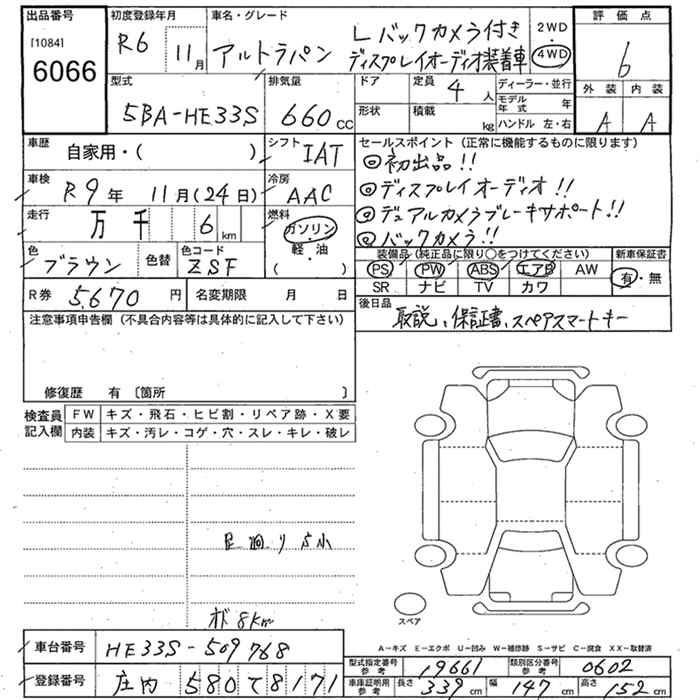 出品番号 初度登録年月 車名・グレード 評価点
[1084] 6066
R6 11月 アルトラパン Lバックカメラ付き ディスプレイオーディオ装着車
2WD・4WD
6
外装 内装
A A
型式 排気量 ドア 定員 4人 ディーラー・並行
5BA-HE33S 660cc
形状 積載 kg モデル年式 年
ハンドル 左・右
車歴 自家用・( ) シフト IAT
セールスポイント(正常に機能するものに限ります)
◎初出品!!
◎ディスプレイオーディオ!!
◎デュアルカメラブレーキサポート!!
◎バックカメラ!!
車検 R9年 11月(24日) 冷房 AAC
走行 万 千 6km 燃料 ガソリン・軽油 ( )
色 ブラウン 色替 色コード ZSF
装備品(純正品に限り○をつけてください) 新車保証書
PS PW ABS エアB AW 有・無
SR ナビ TV カワ
R券 5,670円 名変期限 月 日
後日品 取説、保証書、スペアスマートキー
注意事項申告欄(不具合内容等は具体的に記入して下さい)
修復歴 有〔箇所 〕
検査員記入欄
FW キズ・飛石・ヒビ割・リペア跡・X要
内装 キズ・汚レ・コゲ・穴・スレ・キレ・破レ
足廻りS小
オド 8km
スペア
A-キズ E-エクボ U-凹み W-補修跡 S-サビ C-腐食 XX-取替済
車台番号 HE33S-509768
登録番号 庄内 580て8171
型式指定番号 参考 19661 類別区分番号 参考 0602
車庫証明用 参考 長さ 339cm 幅 147cm 高さ 152cm